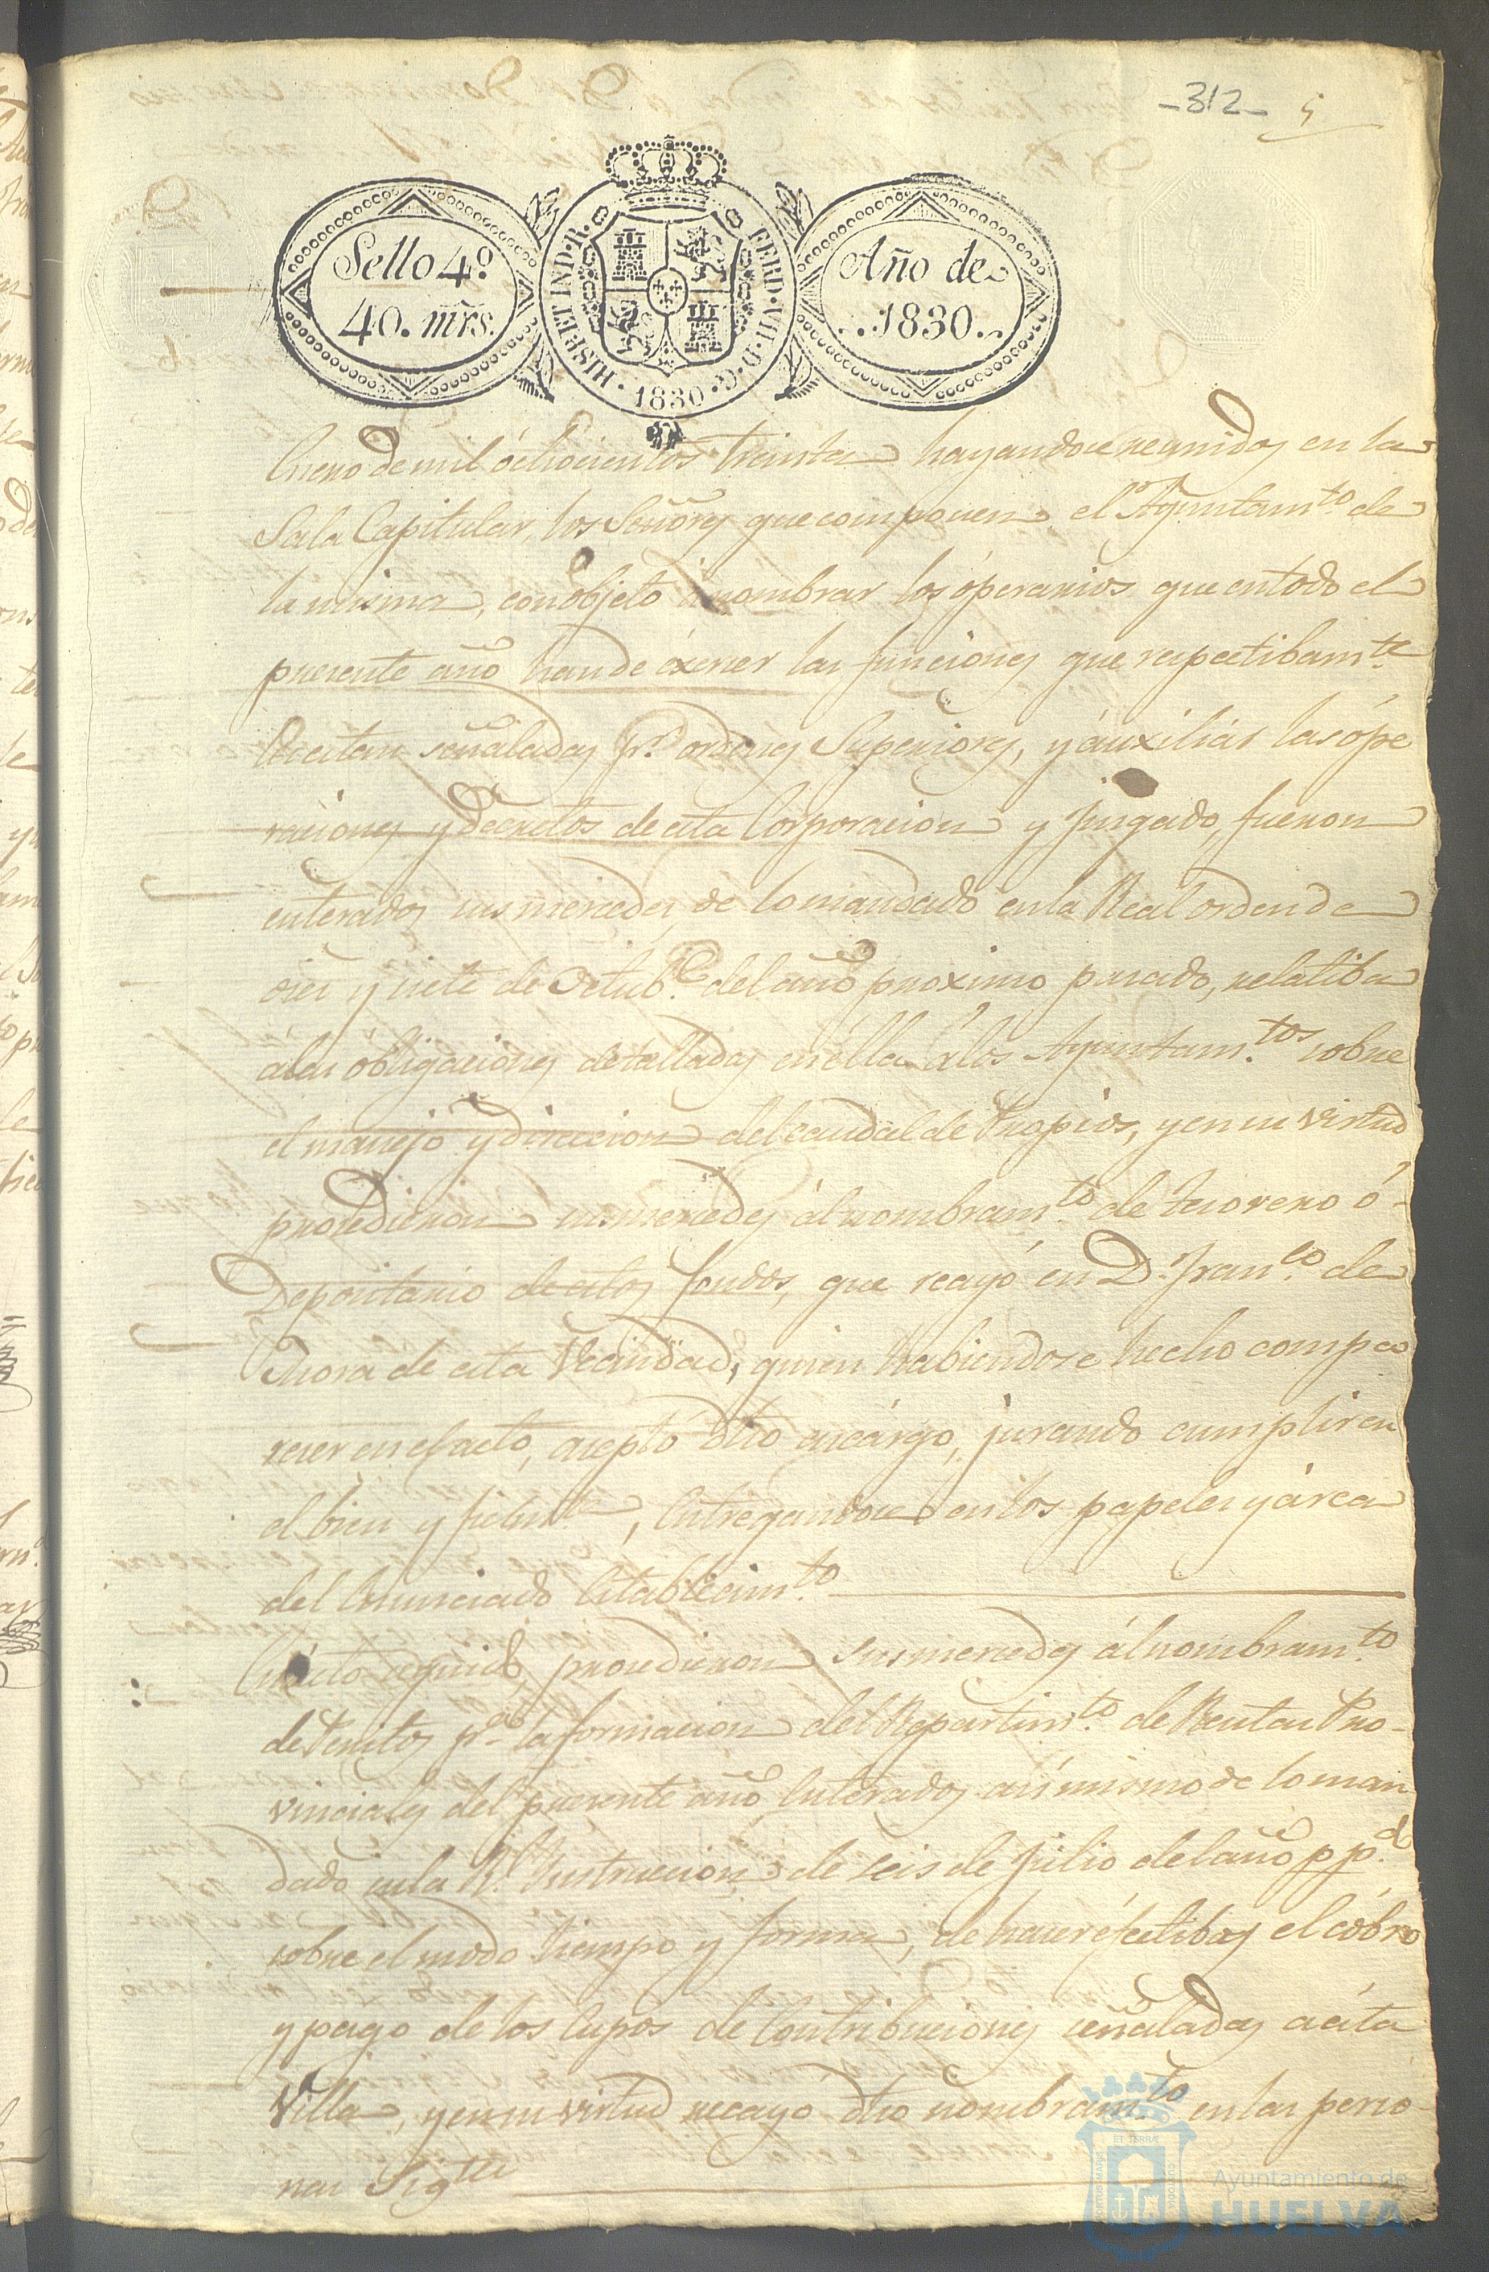 -312- 5
Sello 4º
40. mrs.
HISP. ET IND. R. FERD. VII. D. G. 1830
Año de
1830.
Enero de mil óchocientos treinta hayandose reunidos en la
Sala Capitular, los Señores que componen el Ayuntam.to de
la misma, con objeto á nombrar los óperarios que en todo el
presente año han de éxercer las funciones que respectibam.te
le estan señaladas p.r ordenes Superiores, y áuxiliar las ópe
raciones y Decretos de esta Corporacion y Juzgado, fueron
enterados sus mercedes de lo mandado en la Real orden de
diez y siete de Octub.e del año proximo pasado, relatiba
á las óbligaciones detalladas en élla á los Ayuntam.tos sobre
el manejo y direccion del caudal de Propios, y en su virtud
procedieron sus mercedes ál nombram.to de tesorero ó-
Depositario de estos fondos, que recayó en D. Fran.co de
Mora de esta Vecindad, quien habiendose hecho compa
recer en el acto, áceptó dho encárgo, jurando cumplir en
el bien y fielm.te, Entregandose en los papeles y árca
del Enunciado Establecim.to
En éste seguido procedieron sus mercedes ál nombram.to
de Peritos p.a la formacion del Repartim.to de Rentas Pro-
vinciales del presente año Enterados así mismo de lo man
dado en la R.l Instruccion de seis de Julio del año p.p.do
sobre el modo tiempo y forma, de hacer éfectibas el cóbro
y pago de los Cupos de Contribuciones señaladas a ésta
Villa, y en su virtud recayo dho nombram.to en las perso-
nas Sigtes
Ayuntamiento de
HUELVA